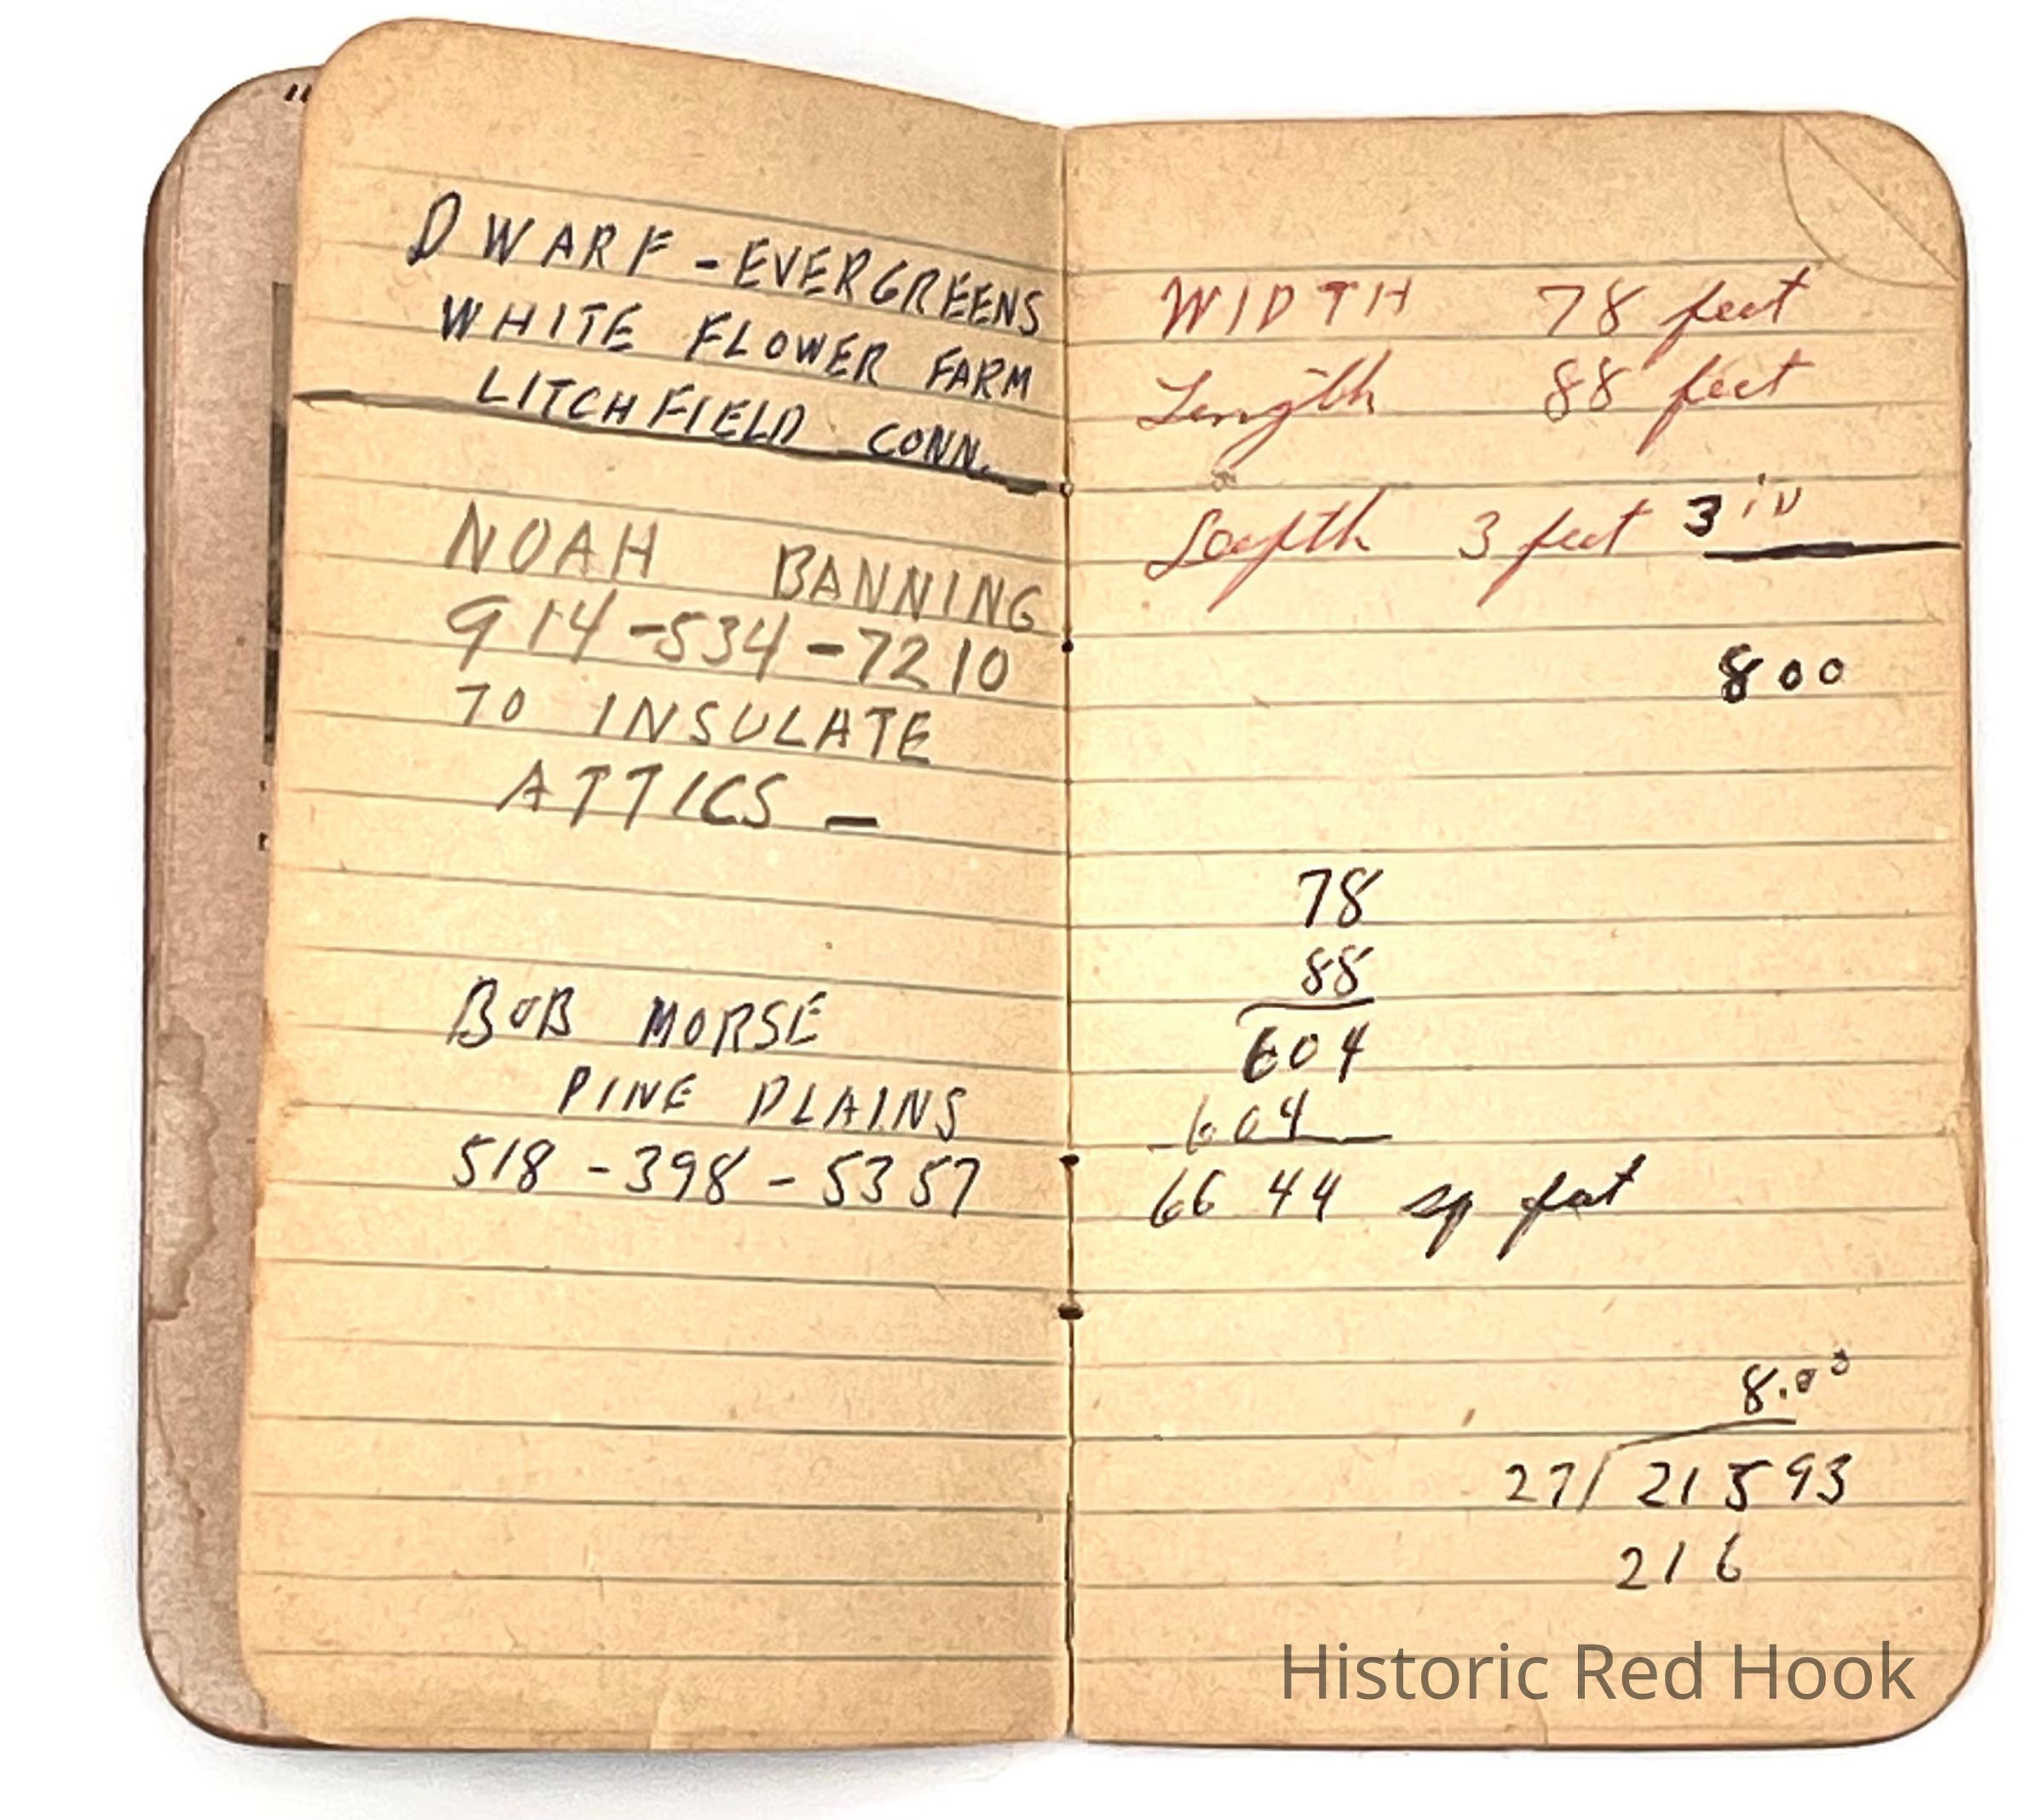 DWARF - EVERGREENS
WHITE FLOWER FARM
LITCHFIELD CONN.
NOAH BANNING
914-534-7210
TO INSULATE
ATTICS -
BOB MORSE
PINE PLAINS
518-398-5357
WIDTH 78 feet
Length 88 feet
Depth 3 feet 3 in
800
78
88
604
604
6644 sq feet
8.00
27/ 21593
216
Historic Red Hook